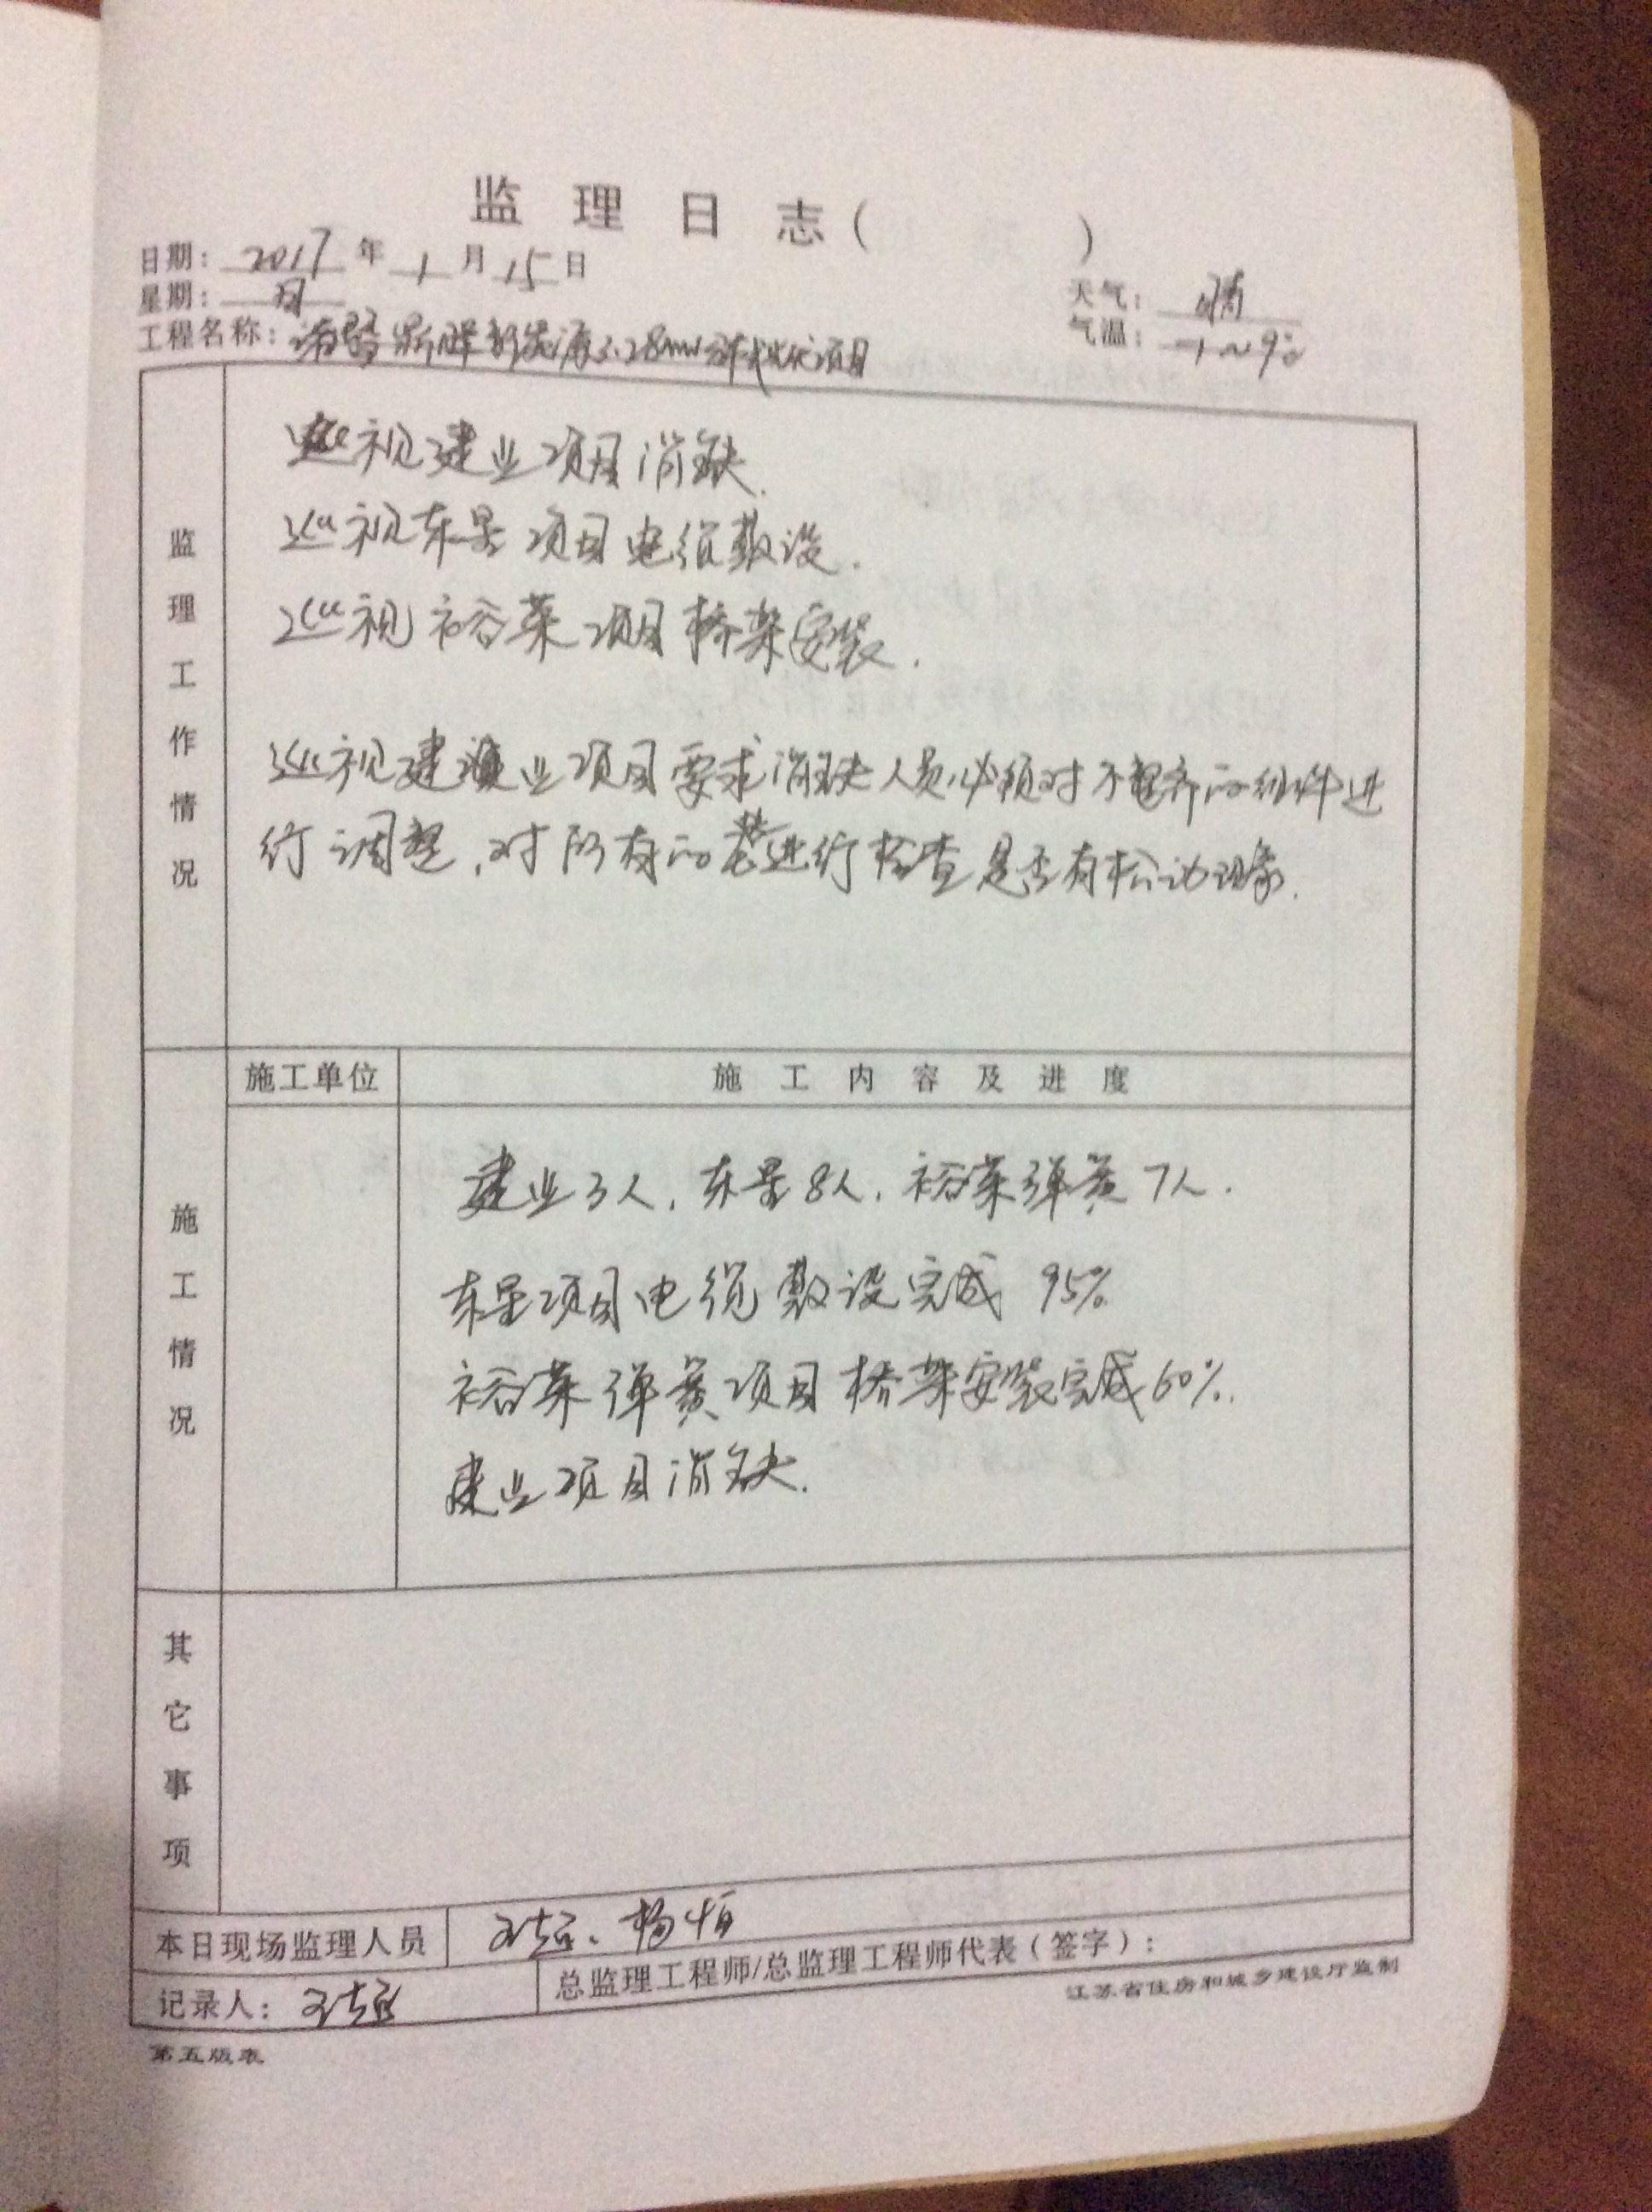 监理日志（ ）
日期：2017年1月15日
星期：日
天气：晴
气温：-1~9℃
工程名称：诸暨 新能源3.28mw分布式光伏项目
监理工作情况
巡视建业项目消缺.
巡视东星项目电缆敷设.
巡视裕荣项目桥架安装.
巡视建业项目要求消缺人员必须对不整齐的组件进
行调整,对所有的 进行检查是否有松动现象.
施工单位
施工内容及进度
施工情况
建业3人,东星8人,裕荣弹簧7人.
东星项目电缆敷设完成95%
裕荣弹簧项目桥架安装完成60%.
建业项目消缺.
其它事项
本日现场监理人员
杨
记录人：
总监理工程师/总监理工程师代表（签字）：
江苏省住房和城乡建设厅监制
第五版表